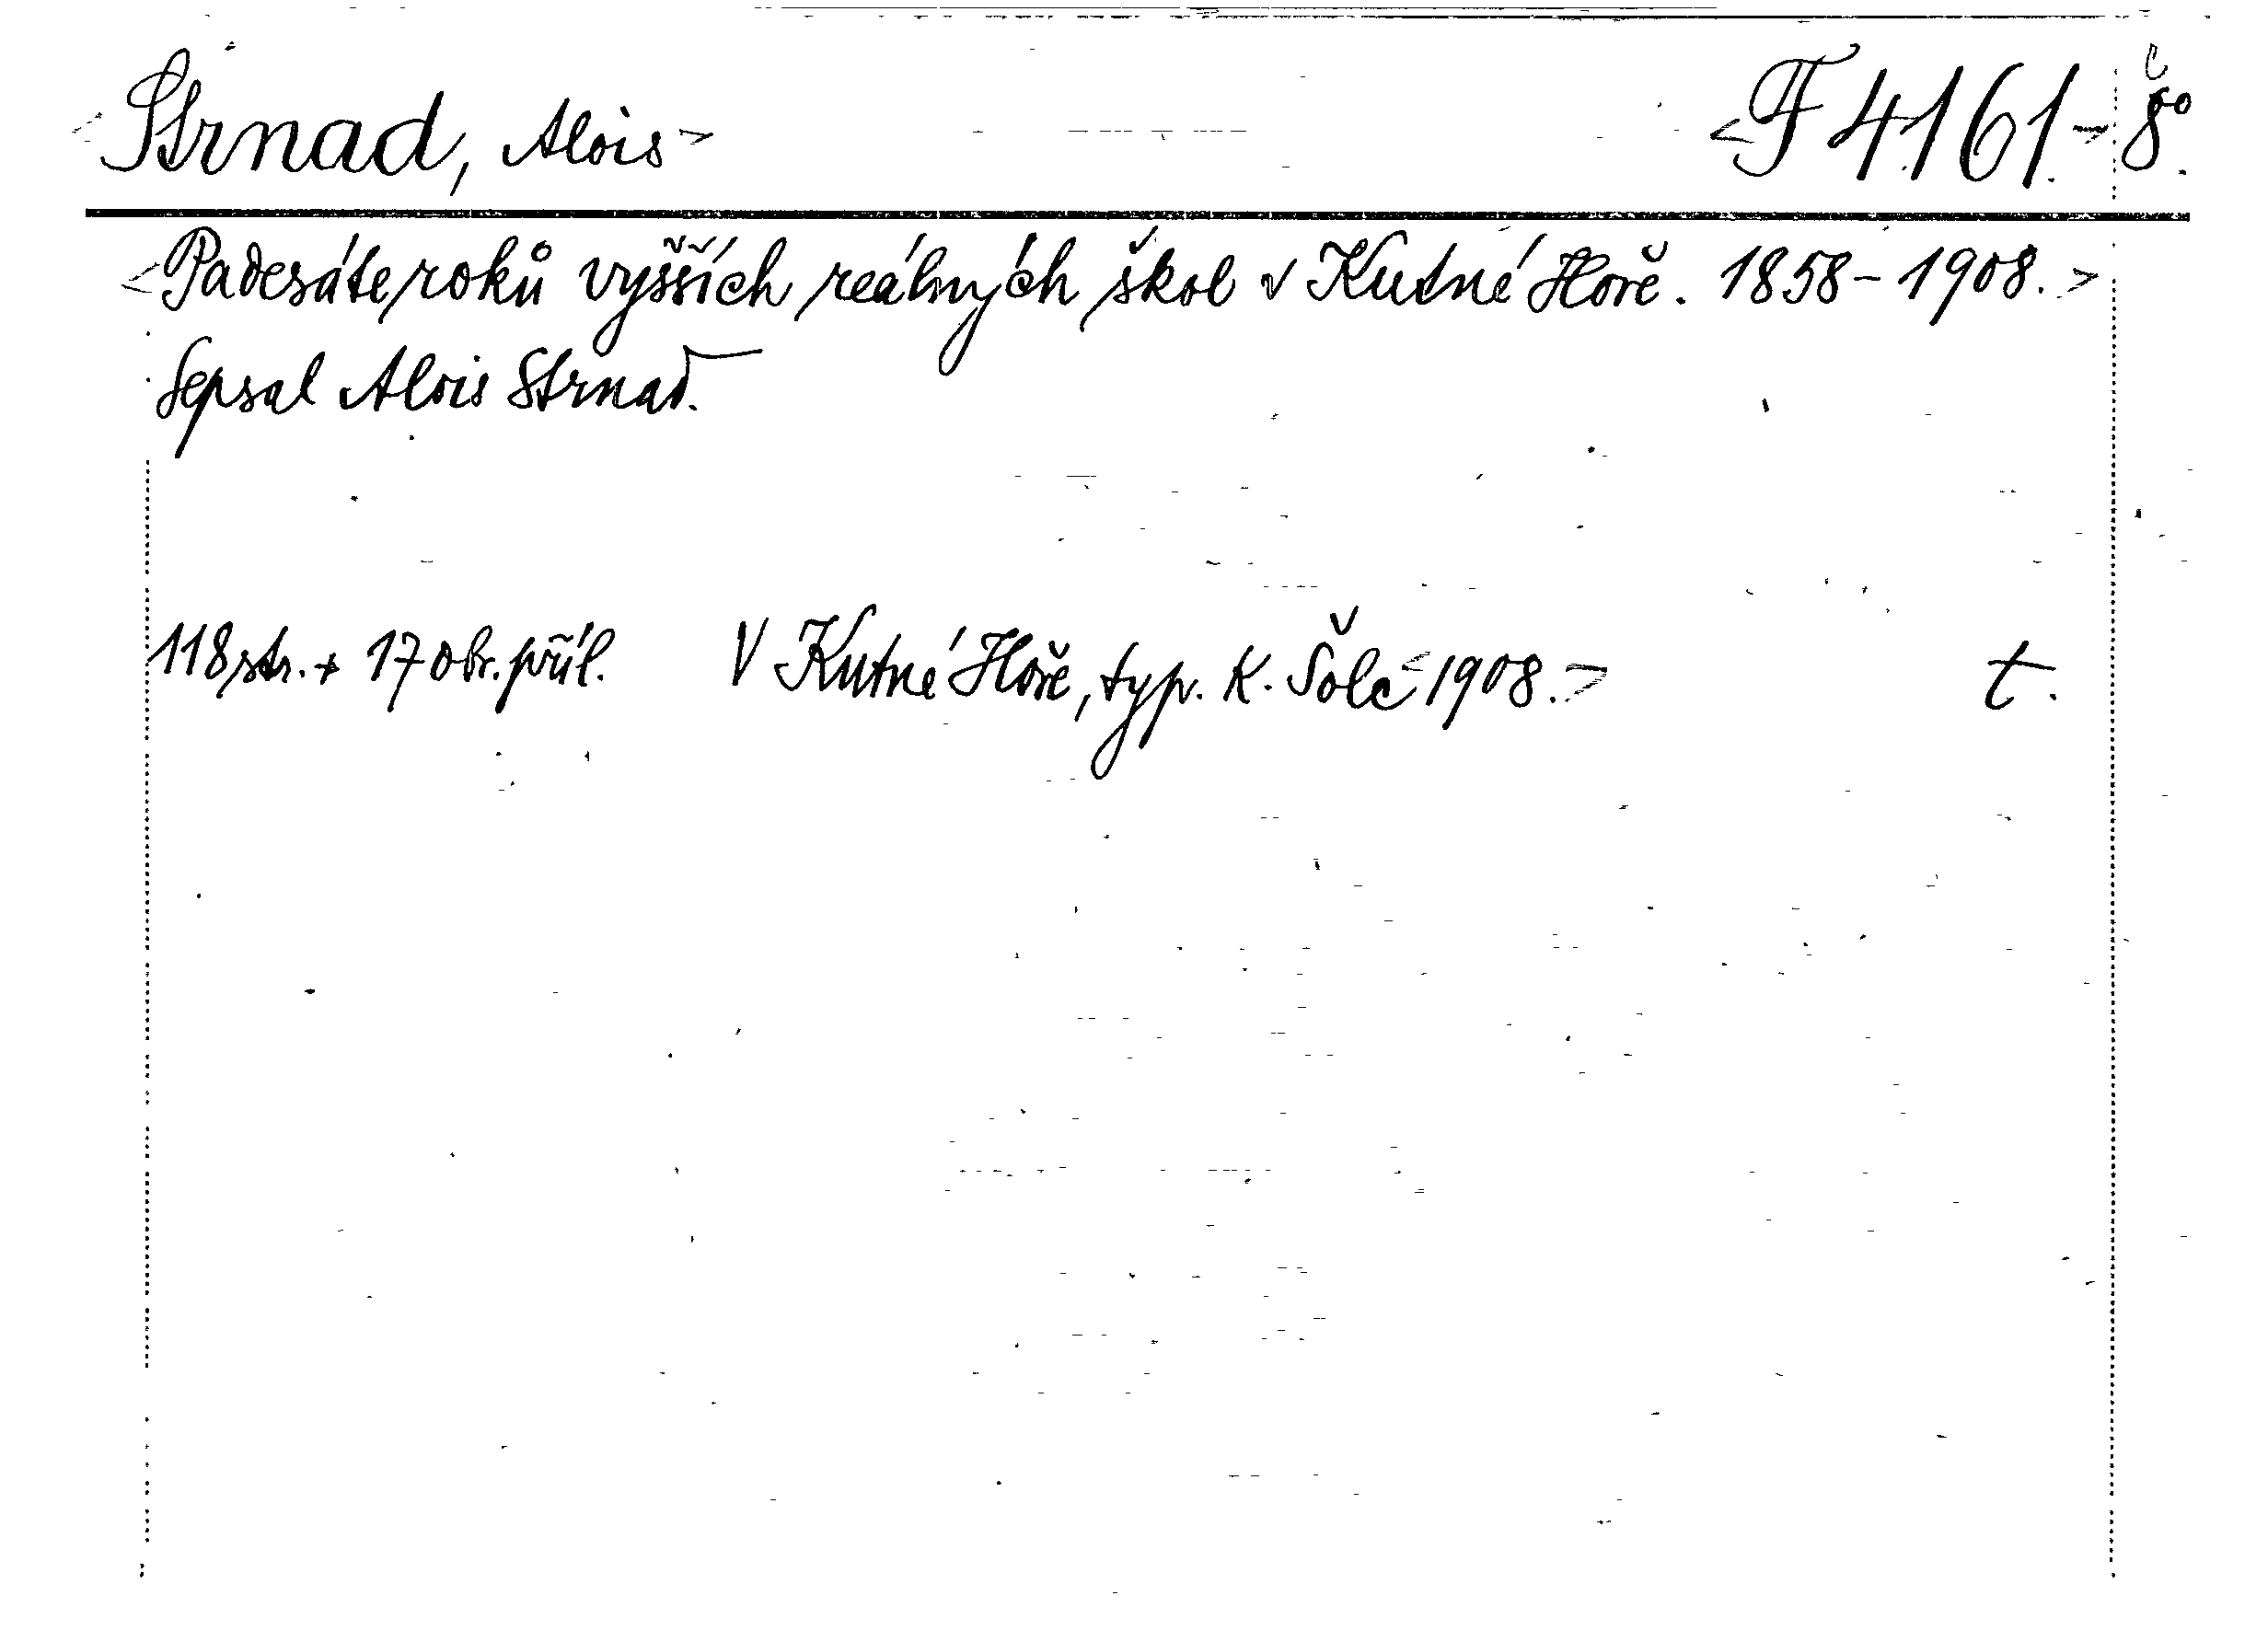 <Strnad, Alois> <F 4161.> 8°.
<Padesáte roků vyšších reálných škol v Kutné Hoře. 1858-1908.>
Sepsal Alois Strnad.
118 str. + 17 obr. příl. V Kutné Hoře, typ. K. Šolc <1908.> t.